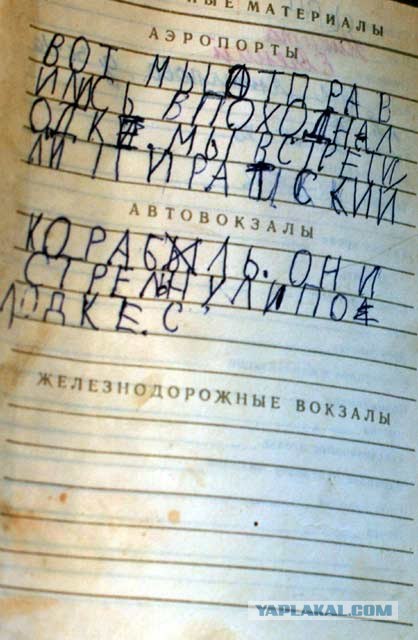 НЫЕ МАТЕРИАЛЫ
АЭРОПОРТЫ
ВОТ МЫ ОТПРАВ
ИЛИСЬ ВПОХОД НА Л
ОДКЕ. МЫ ВСТРЕТИ
ЛИ ПИРАТСКИЙ
АВТОВОКЗАЛЫ
КОРАБЛЬ. ОНИ
СТРЕЛЬНУЛИ ПО
ЛОДКЕ. С
ЖЕЛЕЗНОДОРОЖНЫЕ ВОКЗАЛЫ
YAPLAKAL.COM